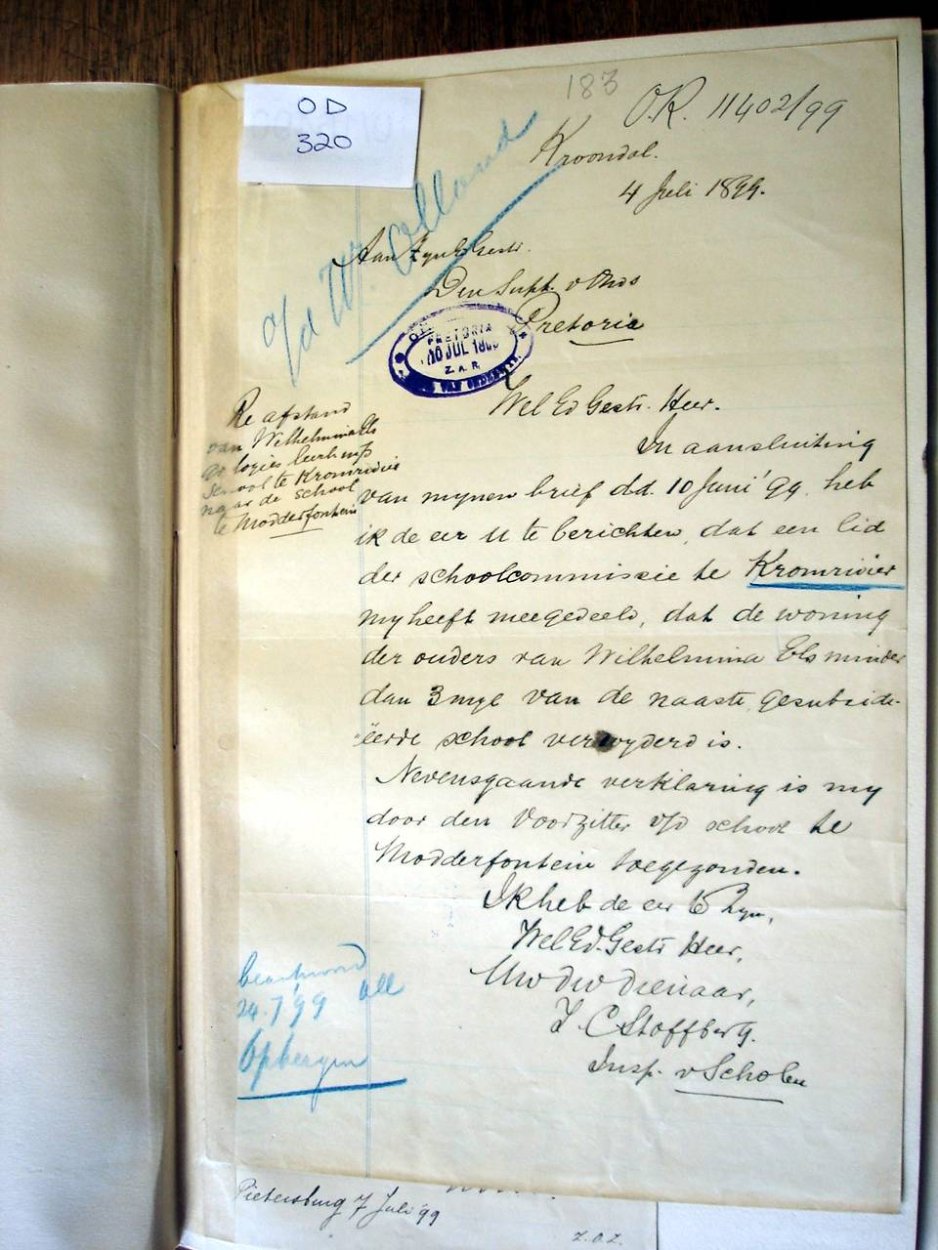 183
O.R. 11402/99
OD
320
Kroondal.
4 Juli 1899.
o/d W. Olland
Aan Zyn Ed Gestr.
Den Supt. v Ondws
Pretoria
PRETORIA
10 JUL 189
Z.A.R.
VAN ONDERWYS
Wel Ed Gestr. Heer.
Re afstand
van Wilhelmina Els
logies leerling
school te Kromrivier
naar de school
te Modderfontein
In aansluiting
van mynen brief dd. 10 Juni '99 heb
ik de eer U te berichten, dat een lid
der schoolcommissie te Kromrivier
my heeft meegedeeld, dat de woning
der ouders van Wilhelmina Els minder
dan 3 myl van de naaste gesubside-
ëerde school verwyderd is.
Nevensgaande verklaring is my
door den Voorzitter v/d school te
Modderfontein toegezonden.
Ik heb de eer te Zyn,
Wel Ed. Gestr Heer,
Uw dw dienaar,
J. C Stoffberg.
Insp. v Scholen
beantwoord
24.7/99 all
Opbergen
Pietersburg 7 Juli '99
Z.O.Z.